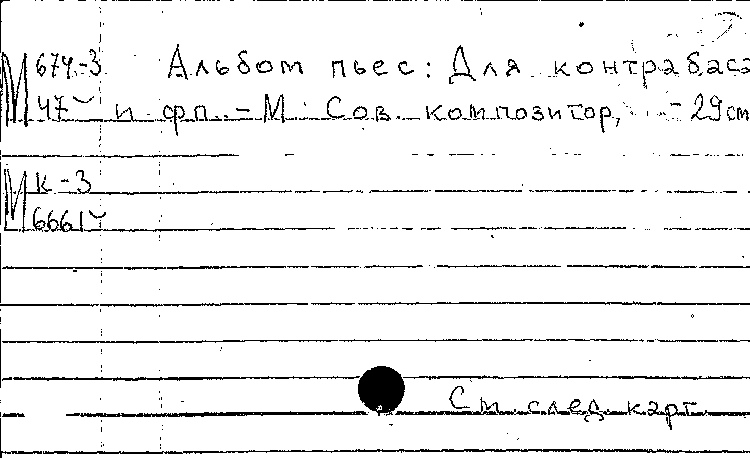 М 674-3 Альбом пьес: Для контрабаса
47 и фп. - М: Сов. композитор, - 29 см
М К-3
6661
См. след. карт.